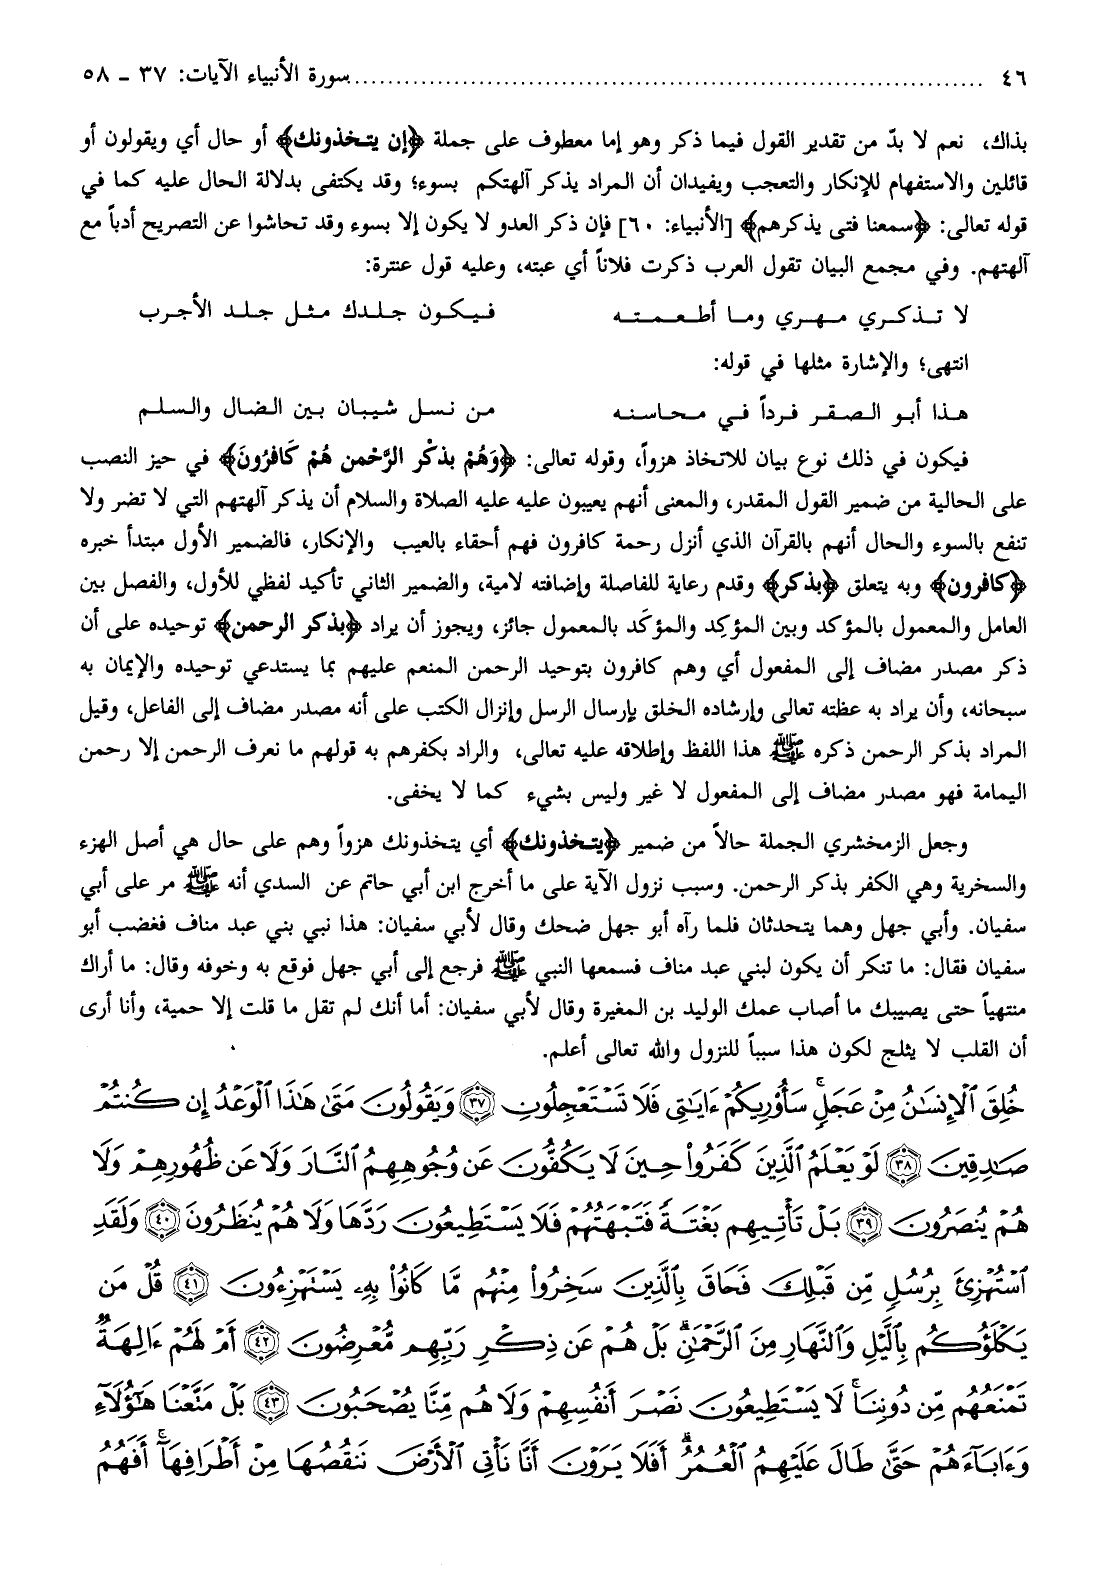 ٤٦ ........................................................................ سورة الأنبياء الآيات: ٣٧ - ٥٨
بذاك، نعم لا بدّ من تقدير القول فيما ذكر وهو إما معطوف على جملة ﴿إن يتخذونك﴾ أو حال أي ويقولون أو
قائلين والاستفهام للإنكار والتعجب ويفيدان أن المراد يذكر آلهتكم بسوء؛ وقد يكتفى بدلالة الحال عليه كما في
قوله تعالى: ﴿سمعنا فتى يذكرهم﴾ [الأنبياء: ٦٠] فإن ذكر العدو لا يكون إلا بسوء وقد تحاشوا عن التصريح أدباً مع
آلهتهم. وفي مجمع البيان تقول العرب ذكرت فلاناً أي عبته، وعليه قول عنترة:
لا تـذكـري مـهـري ومـا أطـعـمـتـه فـيـكـون جـلـدك مـثـل جـلـد الأجـرب
انتهى؛ والإشارة مثلها في قوله:
هـذا أبـو الـصـقـر فـرداً فـي مـحـاسـنـه مـن نـسـل شـيـبـان بـيـن الـضـال والـسـلـم
فيكون في ذلك نوع بيان للاتخاذ هزواً، وقوله تعالى: ﴿وَهُمْ بذكْر الرَّحْمن هُمْ كَافرُونَ﴾ في حيز النصب
على الحالية من ضمير القول المقدر، والمعنى أنهم يعيبون عليه عليه الصلاة والسلام أن يذكر آلهتهم التي لا تضر ولا
تنفع بالسوء والحال أنهم بالقرآن الذي أنزل رحمة كافرون فهم أحقاء بالعيب والإنكار، فالضمير الأول مبتدأ خبره
﴿كافرون﴾ وبه يتعلق ﴿بذكر﴾ وقدم رعاية للفاصلة وإضافته لامية، والضمير الثاني تأكيد لفظي للأول، والفصل بين
العامل والمعمول بالمؤكد وبين المؤكِد والمؤكَد بالمعمول جائز، ويجوز أن يراد ﴿بذكر الرحمن﴾ توحيده على أن
ذكر مصدر مضاف إلى المفعول أي وهم كافرون بتوحيد الرحمن المنعم عليهم بما يستدعي توحيده والإيمان به
سبحانه، وأن يراد به عظته تعالى وإرشاده الخلق بإرسال الرسل وإنزال الكتب على أنه مصدر مضاف إلى الفاعل، وقيل
المراد بذكر الرحمن ذكره ﷺ هذا اللفظ وإطلاقه عليه تعالى، والراد بكفرهم به قولهم ما نعرف الرحمن إلا رحمن
اليمامة فهو مصدر مضاف إلى المفعول لا غير وليس بشيء كما لا يخفى.
وجعل الزمخشري الجملة حالاً من ضمير ﴿يتخذونك﴾ أي يتخذونك هزواً وهم على حال هي أصل الهزء
والسخرية وهي الكفر بذكر الرحمن. وسبب نزول الآية على ما أخرج ابن أبي حاتم عن السدي أنه ﷺ مر على أبي
سفيان. وأبي جهل وهما يتحدثان فلما رآه أبو جهل ضحك وقال لأبي سفيان: هذا نبي بني عبد مناف فغضب أبو
سفيان فقال: ما تنكر أن يكون لبني عبد مناف فسمعها النبي ﷺ فرجع إلى أبي جهل فوقع به وخوفه وقال: ما أراك
منتهياً حتى يصيبك ما أصاب عمك الوليد بن المغيرة وقال لأبي سفيان: أما أنك لم تقل ما قلت إلا حمية، وأنا أرى
أن القلب لا يثلج لكون هذا سبباً للنزول والله تعالى أعلم.
خُلِقَ ٱلْإِنسَـٰنُ مِنْ عَجَلٍ ۚ سَأُو۟رِيكُمْ ءَايَـٰتِى فَلَا تَسْتَعْجِلُونِ ﴿٣٧﴾ وَيَقُولُونَ مَتَىٰ هَـٰذَا ٱلْوَعْدُ إِن كُنتُمْ
صَـٰدِقِينَ ﴿٣٨﴾ لَوْ يَعْلَمُ ٱلَّذِينَ كَفَرُوا۟ حِينَ لَا يَكُفُّونَ عَن وُجُوهِهِمُ ٱلنَّارَ وَلَا عَن ظُهُورِهِمْ وَلَا
هُمْ يُنصَرُونَ ﴿٣٩﴾ بَلْ تَأْتِيهِم بَغْتَةً فَتَبْهَتُهُمْ فَلَا يَسْتَطِيعُونَ رَدَّهَا وَلَا هُمْ يُنظَرُونَ ﴿٤٠﴾ وَلَقَدِ
ٱسْتُهْزِئَ بِرُسُلٍ مِّن قَبْلِكَ فَحَاقَ بِٱلَّذِينَ سَخِرُوا۟ مِنْهُم مَّا كَانُوا۟ بِهِۦ يَسْتَهْزِءُونَ ﴿٤١﴾ قُلْ مَن
يَكْلَؤُكُم بِٱلَّيْلِ وَٱلنَّهَارِ مِنَ ٱلرَّحْمَـٰنِ ۗ بَلْ هُمْ عَن ذِكْرِ رَبِّهِم مُّعْرِضُونَ ﴿٤٢﴾ أَمْ لَهُمْ ءَالِهَةٌ
تَمْنَعُهُم مِّن دُونِنَا ۚ لَا يَسْتَطِيعُونَ نَصْرَ أَنفُسِهِمْ وَلَا هُم مِّنَّا يُصْحَبُونَ ﴿٤٣﴾ بَلْ مَتَّعْنَا هَـٰٓؤُلَآءِ
وَءَابَآءَهُمْ حَتَّىٰ طَالَ عَلَيْهِمُ ٱلْعُمُرُ ۗ أَفَلَا يَرَوْنَ أَنَّا نَأْتِى ٱلْأَرْضَ نَنقُصُهَا مِنْ أَطْرَافِهَآ ۚ أَفَهُمُ